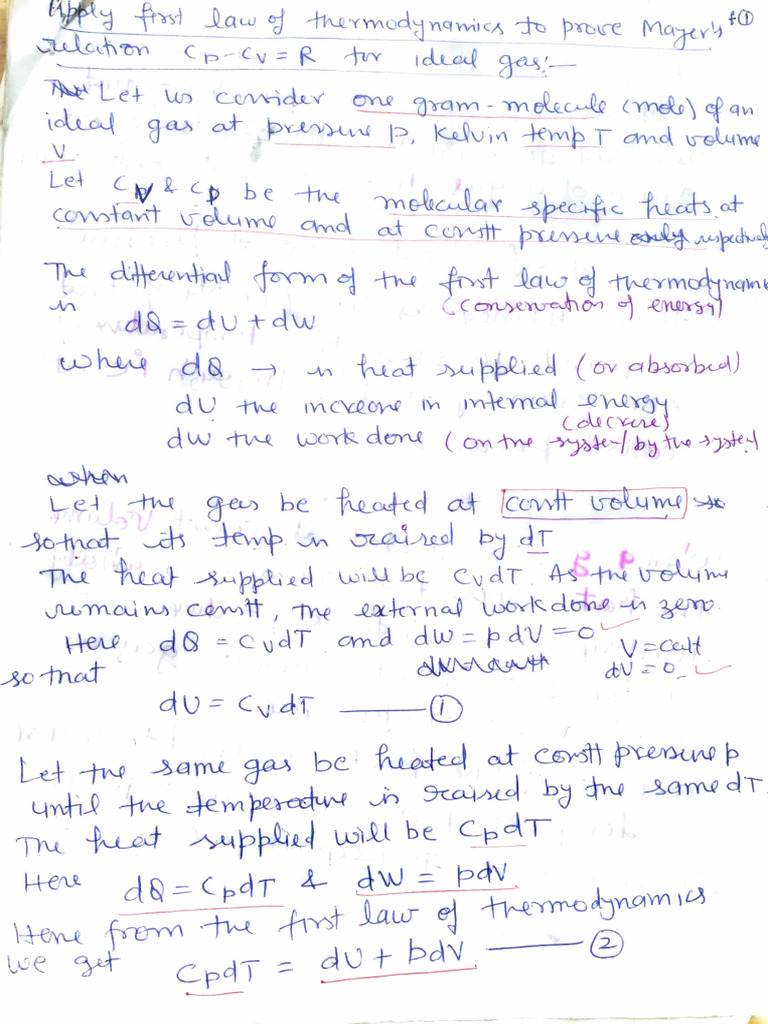 Apply first law of thermodynamics to prove Mayer's
relation Cp-Cv=R for ideal gas:-
Let us consider one gram-molecule (mole) of an
ideal gas at pressure p, Kelvin temp T and volume
V
Let Cv & Cp be the molecular specific heats at
constant volume and at constt pressure respectively
The differential form of the first law of thermodynamics
is (conservation of energy)
dQ = dU + dW
where dQ → is heat supplied (or absorbed)
dU the increase in internal energy
(decrese)
dW the work done (on the system/by the system
when
Let the gas be heated at constt volume so
so that its temp is raised by dT
The heat supplied will be CvdT. As the volume
remains constt, the external work done is zero.
Here dQ = CvdT and dw = pdV = 0 V = Cott
dV = 0
so that
dU = CvdT —— ①
Let the same gas be heated at constt pressure p
until the temperature is raised by the same dT
The heat supplied will be CpdT
Here dQ = CpdT & dW = pdV
Hene from the first law of thermodynamics
we get CpdT = dU + pdV —— ②